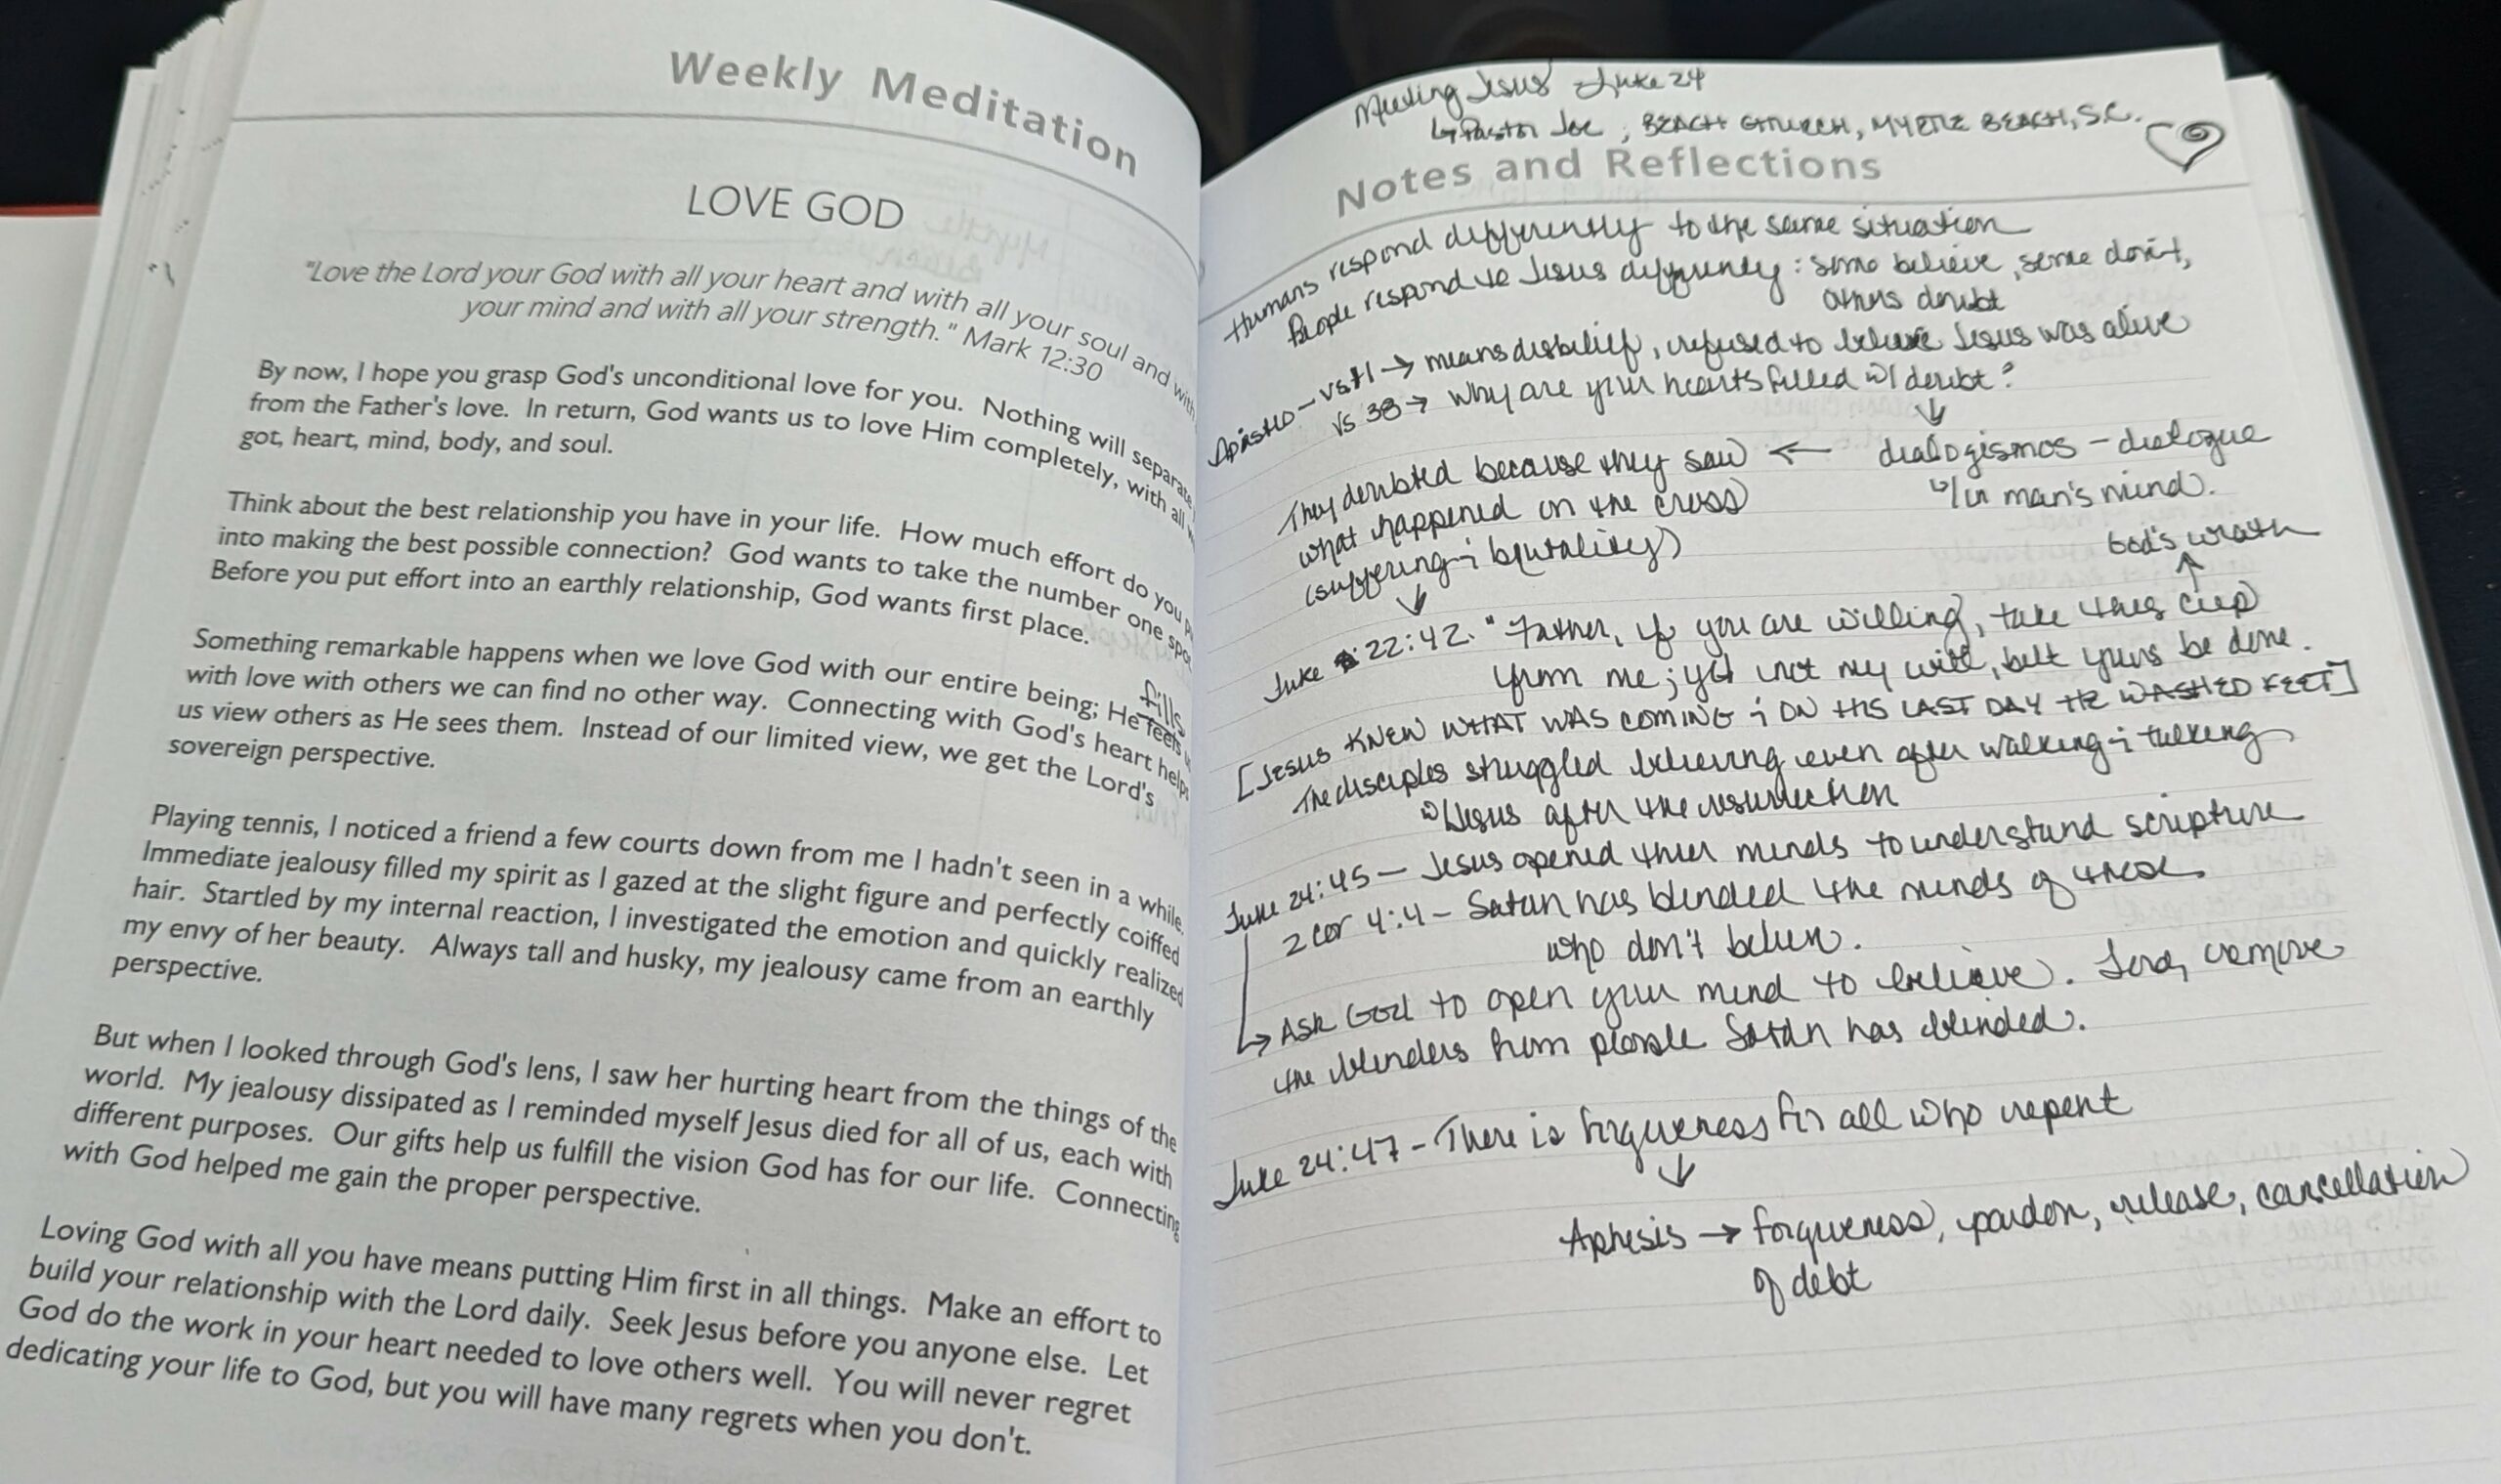 Weekly Meditation
LOVE GOD
"Love the Lord your God with all your heart and with all your soul and with
your mind and with all your strength." Mark 12:30
By now, I hope you grasp God's unconditional love for you. Nothing will separate
from the Father's love. In return, God wants us to love Him completely, with all
got, heart, mind, body, and soul.
Think about the best relationship you have in your life. How much effort do you
into making the best possible connection? God wants to take the number one
Before you put effort into an earthly relationship, God wants first place.
Something remarkable happens when we love God with our entire being; He feels
fills
with love with others we can find no other way. Connecting with God's heart helps
us view others as He sees them. Instead of our limited view, we get the Lord's
sovereign perspective.
Playing tennis, I noticed a friend a few courts down from me I hadn't seen in a while.
Immediate jealousy filled my spirit as I gazed at the slight figure and perfectly coiffed
hair. Startled by my internal reaction, I investigated the emotion and quickly realized
my envy of her beauty. Always tall and husky, my jealousy came from an earthly
perspective.
But when I looked through God's lens, I saw her hurting heart from the things of the
world. My jealousy dissipated as I reminded myself Jesus died for all of us, each with
different purposes. Our gifts help us fulfill the vision God has for our life. Connecting
with God helped me gain the proper perspective.
Loving God with all you have means putting Him first in all things. Make an effort to
build your relationship with the Lord daily. Seek Jesus before you anyone else. Let
God do the work in your heart needed to love others well. You will never regret
dedicating your life to God, but you will have many regrets when you don't.
Meeting Jesus Luke 24
↳ Pastor Joe, BEACH CHURCH, MYRTLE BEACH, S.C.
Notes and Reflections
Humans respond differently to the same situation
People respond to Jesus differently: some believe, some don't,
others doubt
Apisteo - vs 41 → means disbelief, refused to believe Jesus was alive
vs 38 → Why are your hearts filled w/ doubt?
↓
They doubted because they saw ← dialogismos - dialogue
what happened on the cross w/in man's mind.
(suffering & brutality) God's wrath
↓ ↑
Luke 22:42. "Father, if you are willing, take this cup
from me; yet not my will, but yours be done.
[JESUS KNEW WHAT WAS COMING & ON HIS LAST DAY HE WASHED FEET]
The disciples struggled believing even after walking & talking
w/ Jesus after the resurrection
Luke 24:45 - Jesus opened their minds to understand scripture
2 Cor 4:4 - Satan has blinded the minds of those
who don't believe.
↳ Ask God to open your mind to believe. Lord, remove
the blinders from people Satan has blinded.
Luke 24:47 - There is forgiveness for all who repent
↓
Aphesis → forgiveness, pardon, release, cancellation
of debt